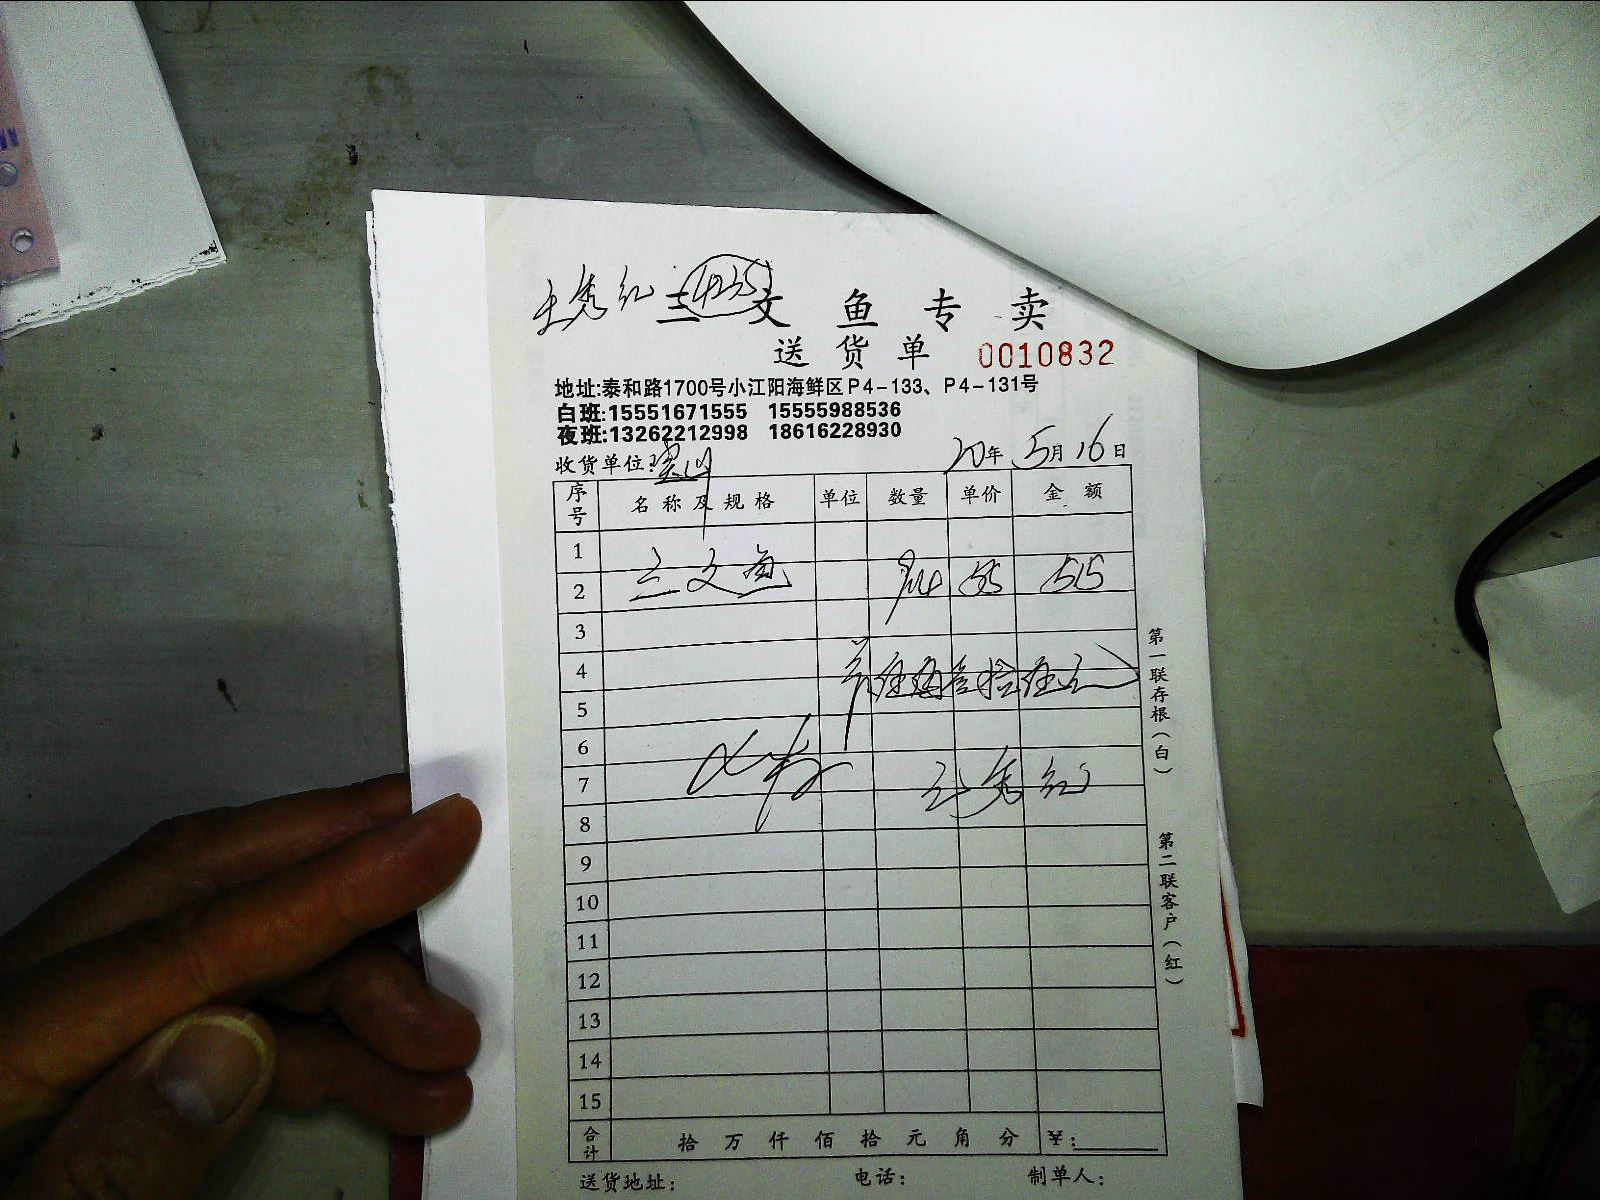 王秀红 4235
三文鱼专卖
送货单 0010832
地址:泰和路1700号小江阳海鲜区P4-133、P4-131号
白班:15551671555 15555988536
夜班:13262212998 18616228930
收货单位:
20年5月16日
序号 名称及规格 单位 数量 单价 金额
1
2 三文鱼 55 515
3
4
5
6
7 王秀红
8
9
10
11
12
13
14
15
合计 拾 万 仟 佰 拾 元 角 分 ¥:
送货地址: 电话: 制单人:
第一联存根(白)
第二联客户(红)